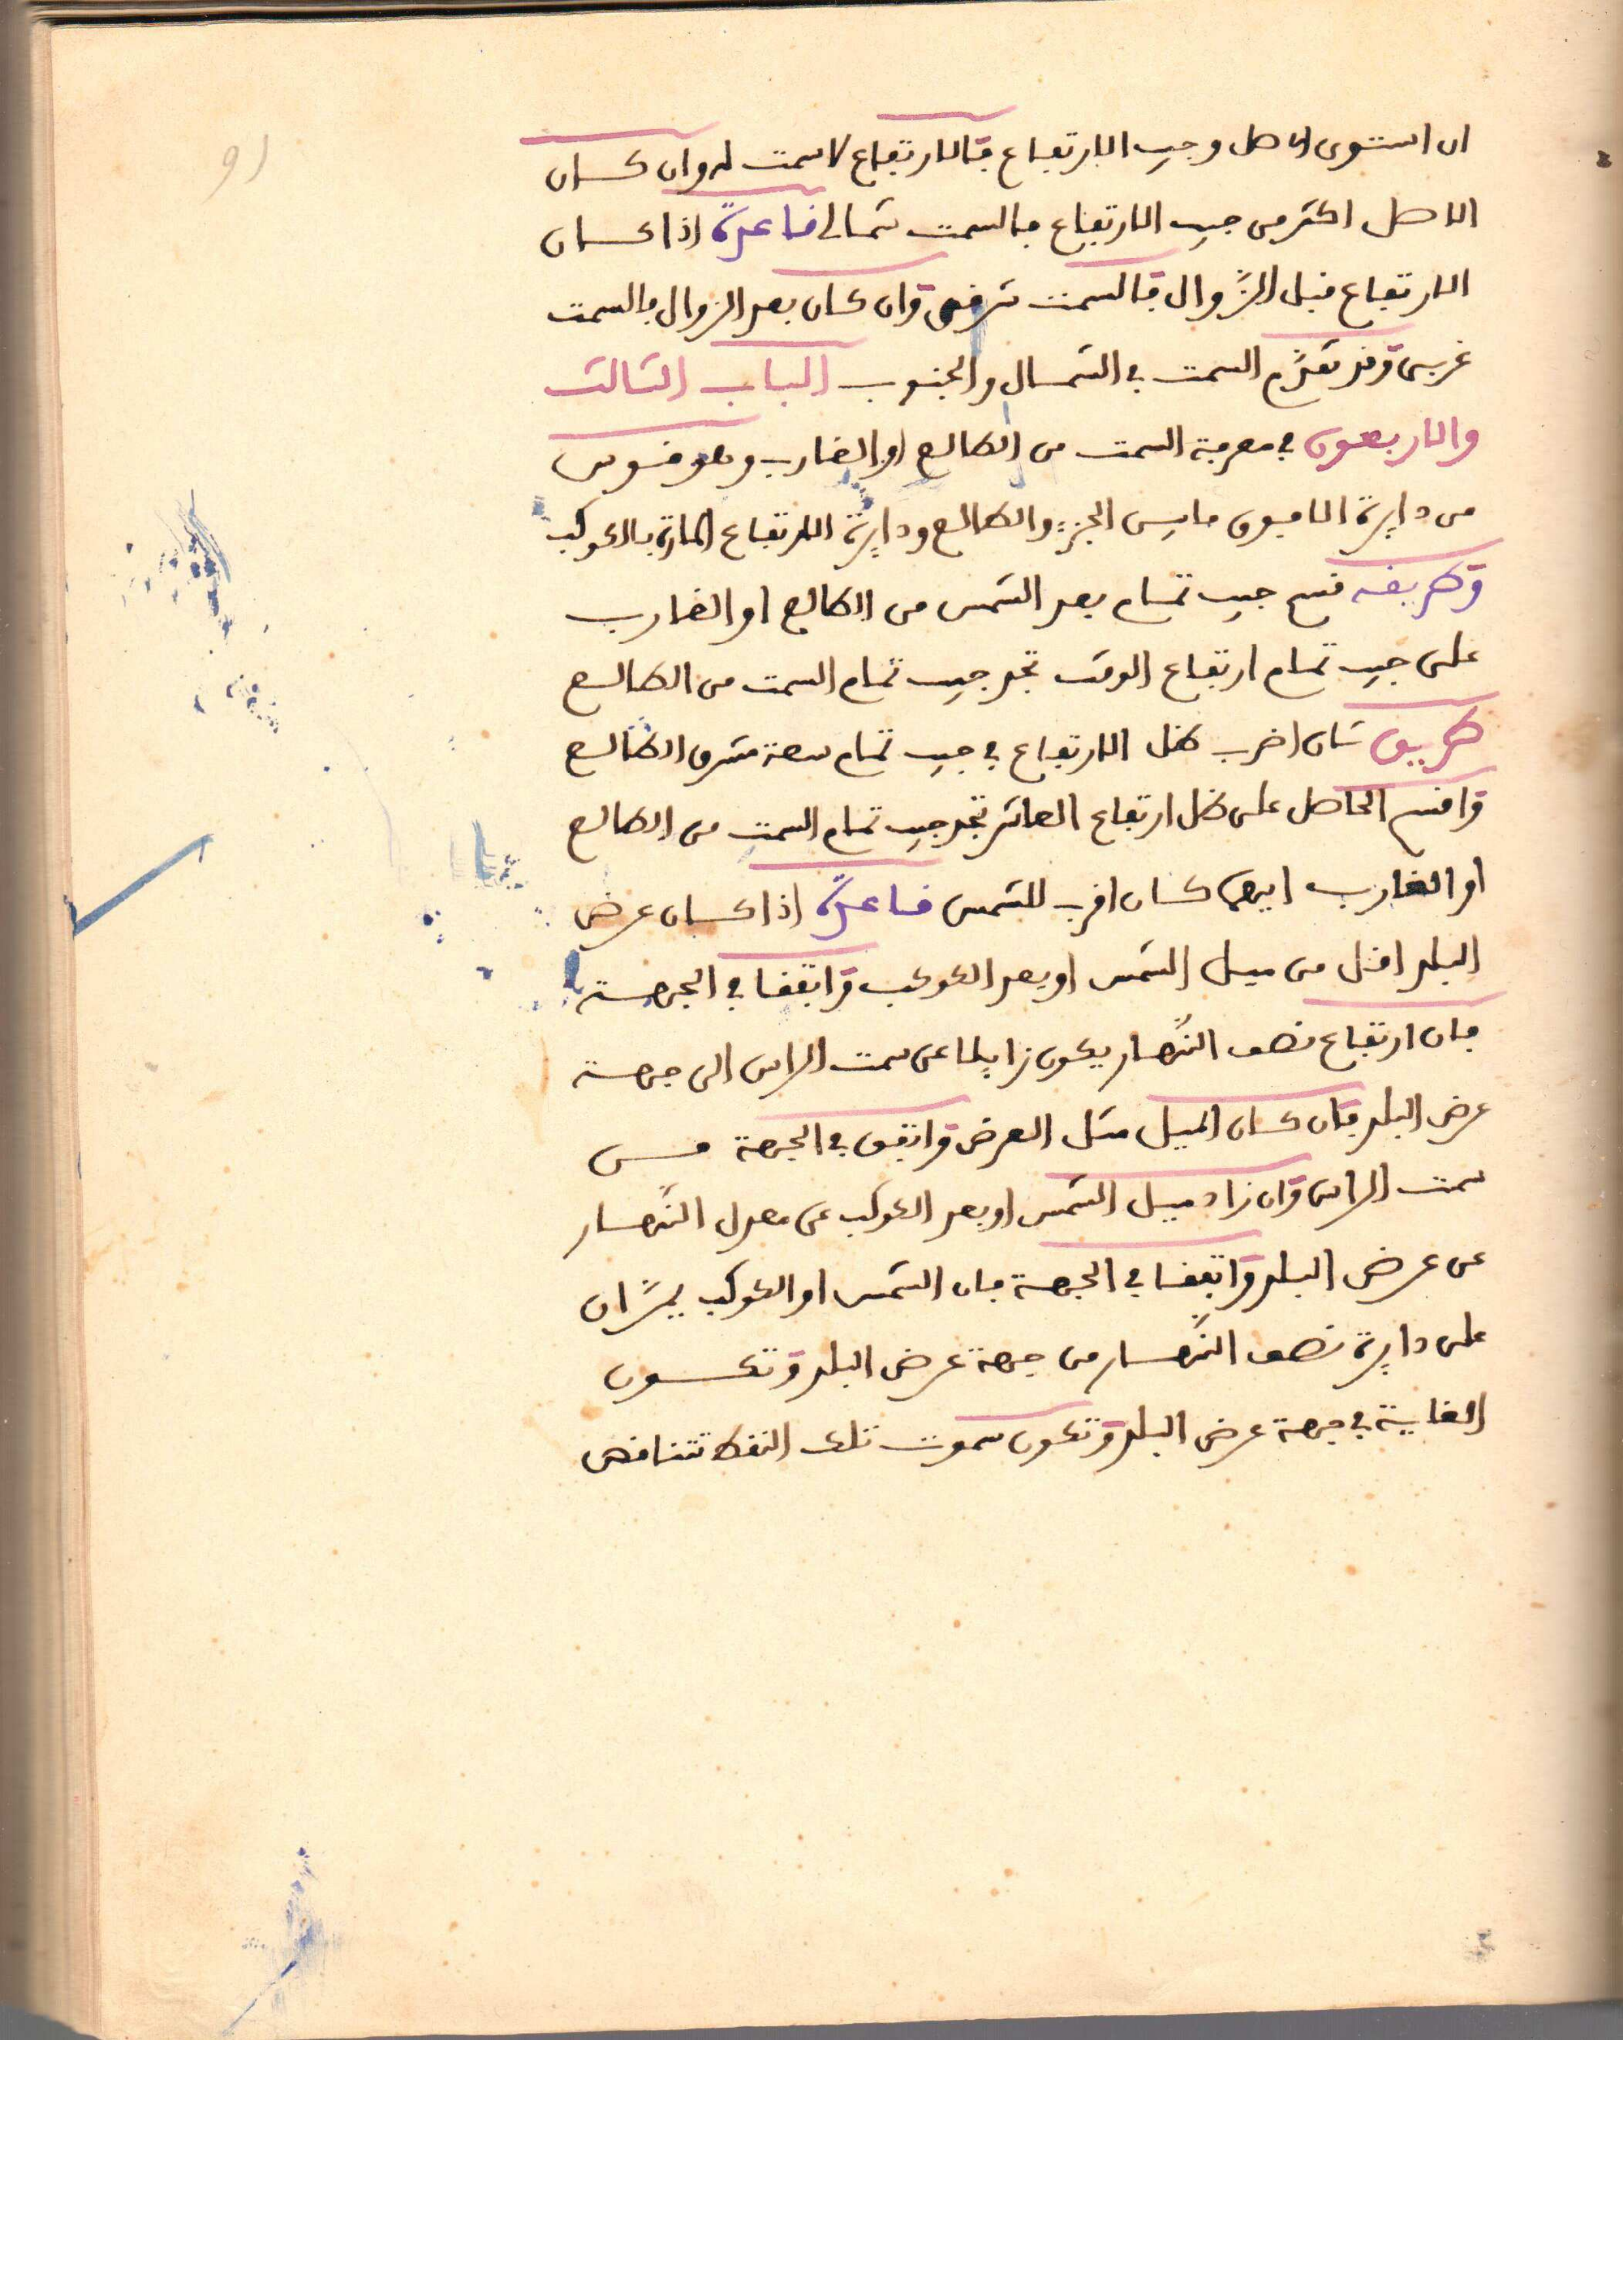 ان استوى الاصل وجيب الارتفاع فالارتفاع لا سمت له وان كان
الاصل اكثر من جيب الارتفاع فالسمت شمالي قاعدة اذا كان
الارتفاع قبل الزّوال فالسمت شرقي وان كان بعد الزوال فالسمت
غربي وقد تقدّم السمت في الشمال والجنوب الباب الثالث
والاربعون في معرفة السمت من الطالع او الغارب وهو قوس
من دايرة الافق ما بين الجزء والطالع ودايرة الارتفاع المارة بالكوكب
وطريقه قسم جيب تمام بعد الشمس من الطالع او الغارب
على جيب تمام ارتفاع الوقت تجد جيب تمام السمت من الطالع
طريق ثان اضرب ظل الارتفاع في جيب تمام سعة مشرق الطالع
واقسم الحاصل على ظل ارتفاع العاشر تجد جيب تمام السمت من الطالع
او الغارب ايهما كان اقرب للشمس قاعدة اذا كان عرض
البلد اقل من ميل الشمس او بعد الكوكب واتفقا في الجهة
فان ارتفاع نصف النّهار يكون زايلا عن سمت الراس الى جهة
عرض البلد فان كان الميل مثل العرض واتفق في الجهة فسي
سمت الراس وان زاد ميل الشمس او بعد الكوكب عن معدل النّهار
عن عرض البلد واتفقا في الجهة فان الشمس او الكوكب يمرّان
على دايرة نصف النّهار من جهة عرض البلد وتكون
الغاية في جهة عرض البلد وتكون سموت تلك النقط تتناقص